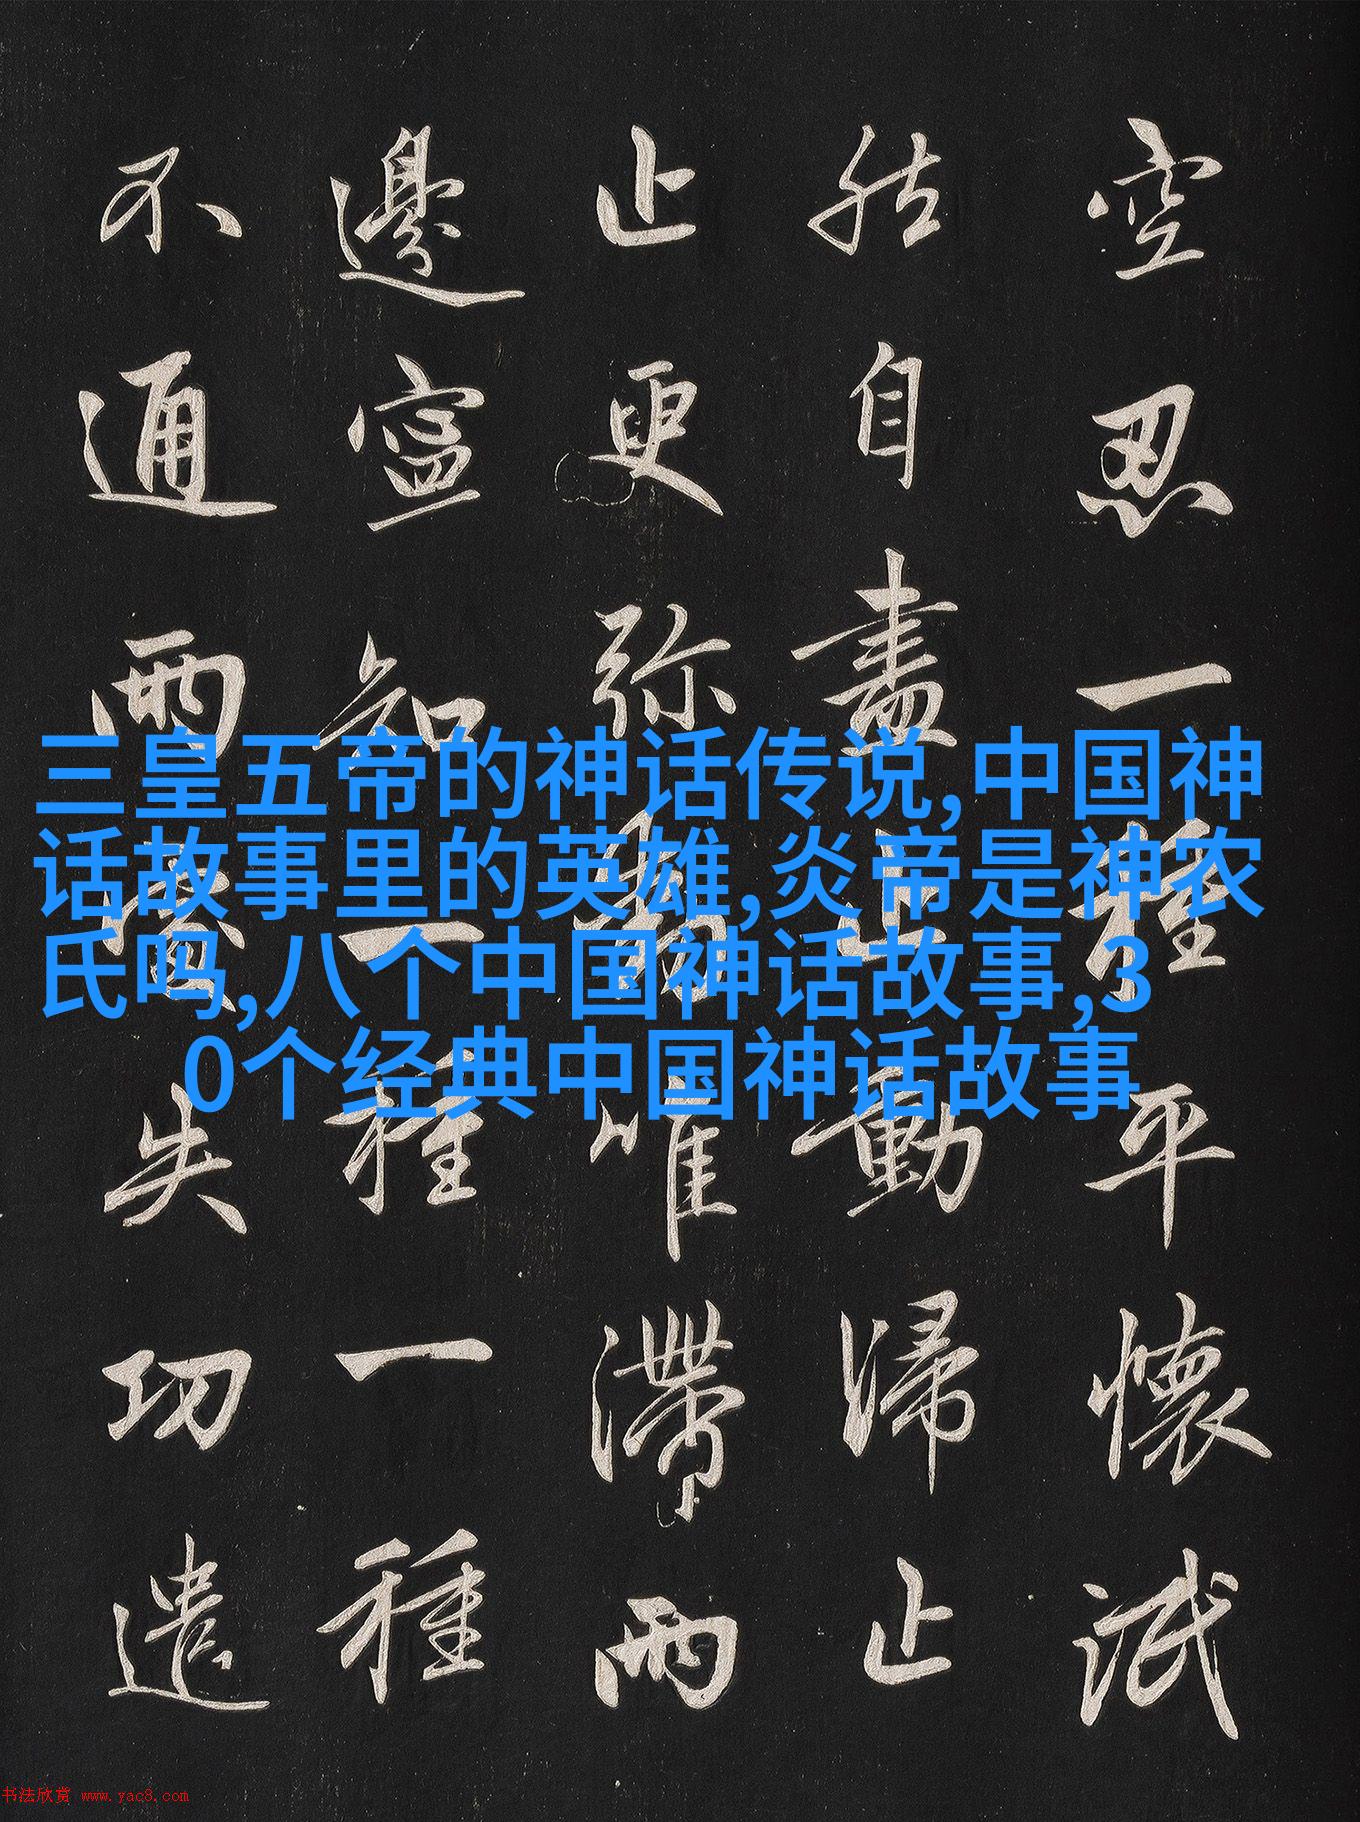 空忍一種平懷泯
然自盡止動歸止
止更弥動唯滯兩
邊寧知一種一種
不通兩處失功遣
三皇五帝的神话传说,中国神
话故事里的英雄,炎帝是神农
氏吗,八个中国神话故事,3
0个经典中国神话故事
书法欣赏 www.yac8.com